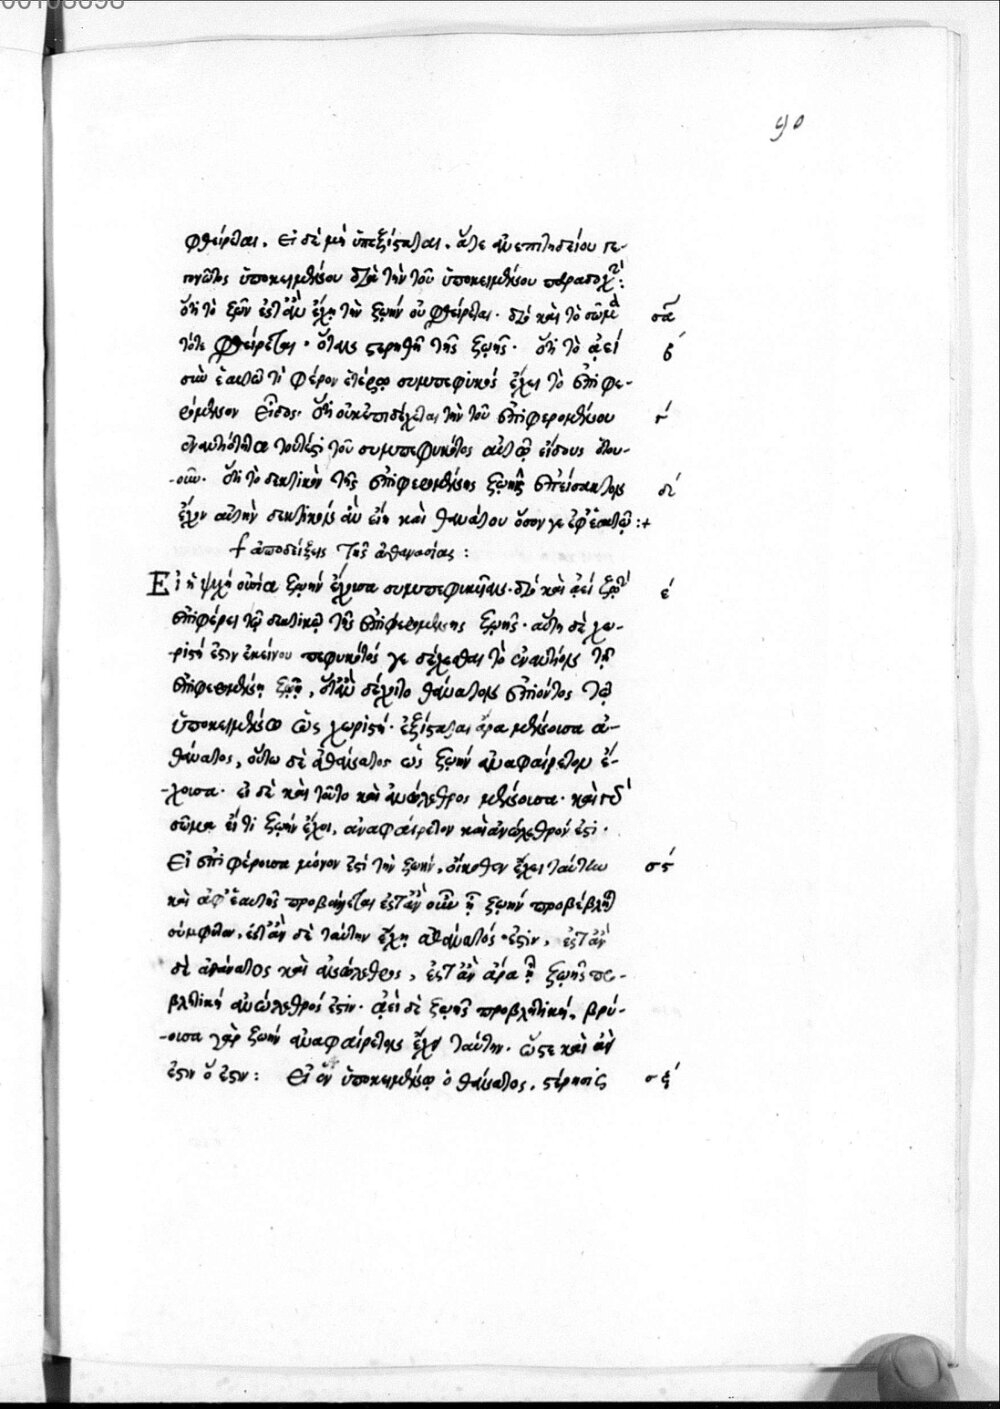 00108698
90
φθείρεται. Εἰ δὲ μὴ ὑπεξίσταται. ἅτε ἀνεπιτηδείου γε-
γονότος ὑποκειμένου διὰ τὴν τοῦ ὑποκειμένου παραδοχήν:
ὅτι τὸ ζῶν ἔστ' ἂν ἔχῃ τὴν ζωὴν οὐ φθείρεται. διὸ καὶ τὸ σῶμα σα
τότε φθείρεται. ὅταν στερηθῇ τῆς ζωῆς. ὅτι τὸ ἀεὶ β
σὺν ἑαυτῷ τι φέρον ἑτέρῳ συμπεφυκὸς ἔχει τὸ ἐπιφε-
ρόμενον εἶδος. ὅτι οὐκ ἐπιδέχεται τὴν τοῦ ἐπιφερομένου γ
ἐναντιότητα τουτέστι τοῦ συμπεφυκότος αὐτῷ εἴδους
ὅτι τὸ δεκτικὸν τῆς ἐπιφερομένης ζωῆς ἐπείσακτον δ
ἔχον αὐτὴν δεκτικὸν ἂν εἴη καὶ θανάτου ὅσον γε ἐφ' ἑαυτῷ :+
ἀποδείξεις τῆς ἀθανασίας :
Εἰ ἡ ψυχὴ οὐσία ζωὴν ἔχουσα συμπεφυκυῖαν. διὸ καὶ ἀεὶ ζωὴν ε
ἐπιφέρει τῷ δεκτικῷ τῆς ἐπιφερομένης ζωῆς. αὕτη δὲ χω-
ριστή ἐστιν ἐκείνου πεφυκότος γε δέχεσθαι τὸ ἐναντίον τῇ
ἐπιφερομένῃ ζωῇ, ὅταν δέχοιτο θάνατον ἐπιόντος τῷ
ὑποκειμένῳ ὡς χωριστή. ἐξίσταται ἄρα μένουσα ἀ-
θάνατος, οὕτω δὲ ἀθάνατος ὡς ζωὴν ἀναφαίρετον ἔ-
-χουσα. εἰ δὲ καὶ τοῦτο καὶ ἀνώλεθρος μένουσα. καὶ τὸ
σῶμα εἴ τι ζωὴν ἔχοι, ἀναφαίρετον καὶ ἀνώλεθρόν ἐστι.
Εἰ ἐπιφέρουσα μόνον ἐστὶ τὴν ζωὴν. οἴκοθεν ἔχει ταύτην σς
καὶ ἀφ' ἑαυτῆς προβάλλεται ἔστ' ἂν οὖν ᾖ ζωὴν προβέβληται
σύμφυτον. ἔστ' ἂν δὲ ταύτην ἔχῃ ἀθάνατός ἐστιν. ἔστ' ἂν
δὲ ἀθάνατος καὶ ἀνώλεθρος, ἔστ' ἂν ἄρα ᾖ ζωῆς προ-
βλητικὴ ἀνώλεθρός ἐστιν. ἀεὶ δὲ ζωῆς προβλητική. βρύ-
-ουσα γὰρ ζωὴν ἀναφαίρετον ἔχει ταύτην. ὥστε καὶ ἀεὶ
ἔστιν ὅ ἐστιν: Εἰ ἐν ὑποκειμένῳ ὁ θάνατος. στέρησις σζ